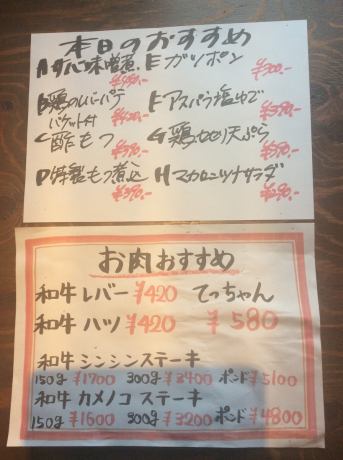 本日のおすすめ
A サバ味噌煮 E ガツポン
¥300-
B 鶏のレバーパテ F アスパラ塩ゆで
バケット付 ¥420- ¥390-
C 酢もつ G 鶏むね天ぷら
¥390- ¥390-
D 特製もつ煮込 H マカロニツナサラダ
¥390- ¥290-
お肉おすすめ
和牛レバー ¥420 てっちゃん
和牛ハツ ¥420 ¥580
和牛シンシンステーキ
150g ¥1700 300g ¥3400 ポンド ¥5100
和牛カメノコステーキ
150g ¥1600 300g ¥3200 ポンド ¥4800